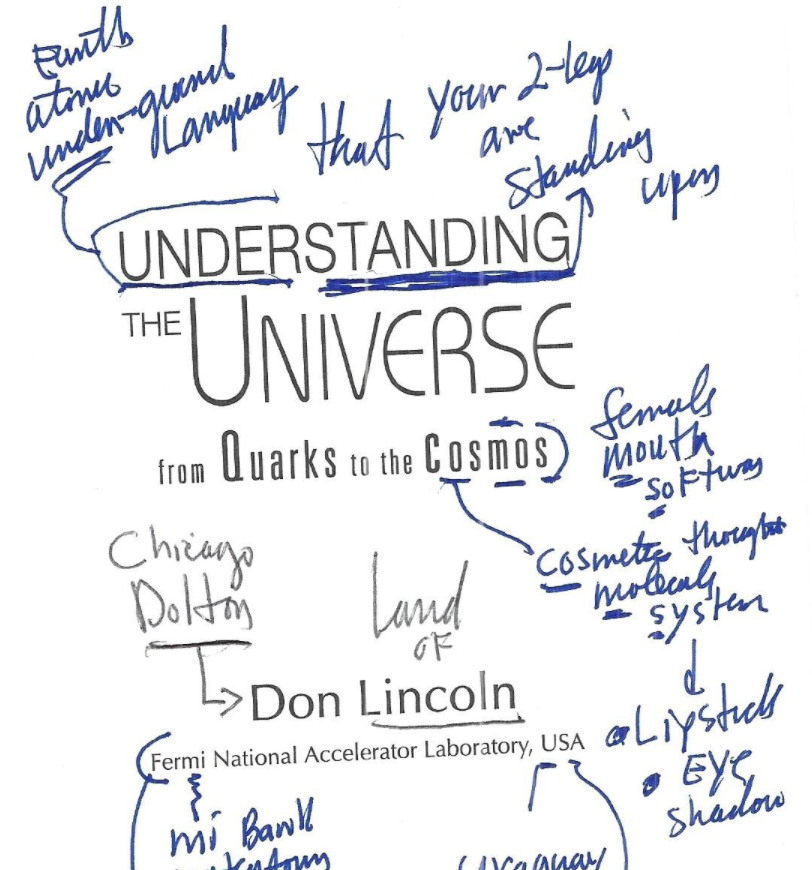 Earth
atomic
under-ground
Language
that your 2-legs
are
standing
upon
UNDERSTANDING
THE UNIVERSE
from Quarks to the Cosmos
female
mouth
softwas
Cosmetic thought
molecule
system
Chicago
Dolton
Land
OF
Don Lincoln
Fermi National Accelerator Laboratory, USA
Lipstick
EYE
shadow
mi Bank
Uraguay